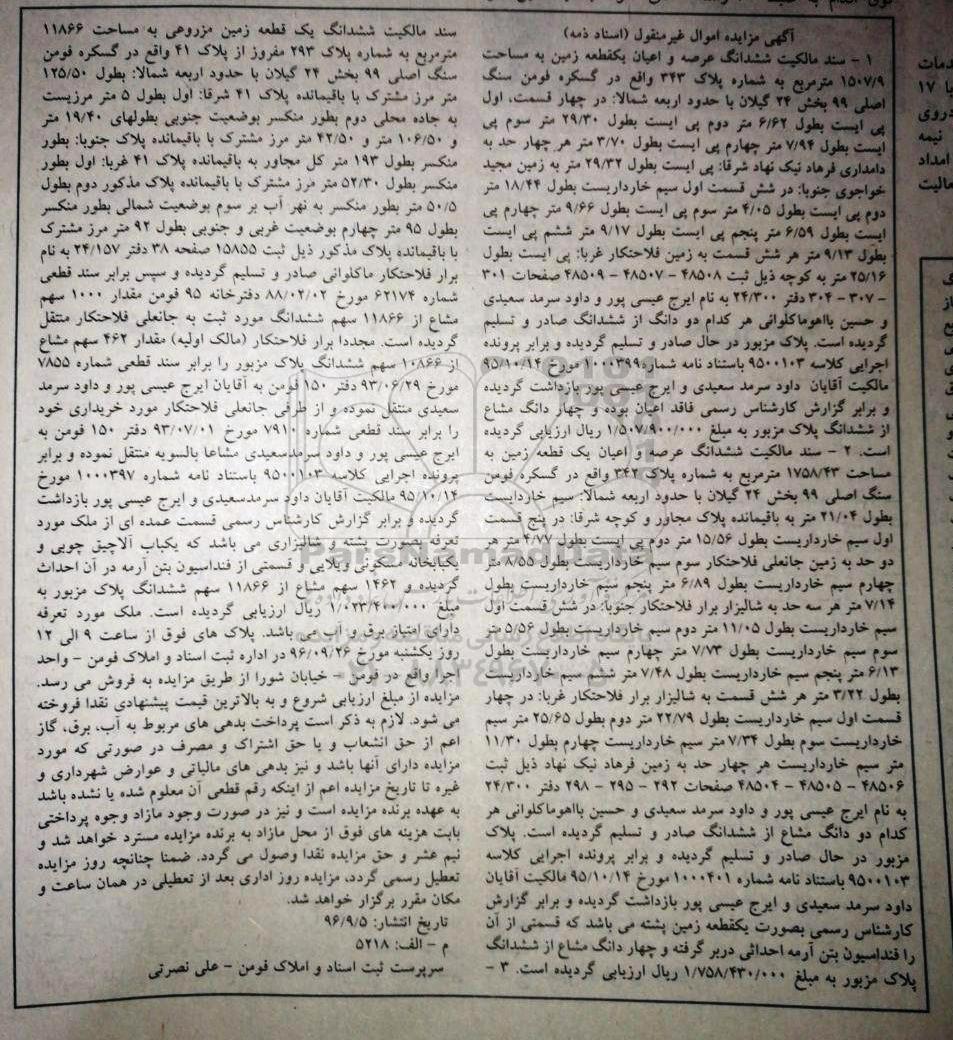 آگهی مزایده اموال غیرمنقول (اسناد ذمه)
۱ - سند مالکیت ششدانگ عرصه و اعیان یکقطعه زمین به مساحت
۱۵۰۷/۹ مترمربع به شماره پلاک ۳۴۳ واقع در گسکره فومن سنگ
اصلی ۹۹ بخش ۲۴ گیلان با حدود اربعه شمالا: در چهار قسمت، اول
پی ایست بطول ۶/۶۲ متر دوم پی ایست بطول ۲۹/۳۰ متر سوم پی
ایست بطول ۷/۹۴ متر چهارم پی ایست بطول ۳/۷۰ متر هر چهار حد به
دامداری فرهاد نیک نهاد شرقا: پی ایست بطول ۲۹/۳۲ متر به زمین مجید
خواجوی جنوبا: در شش قسمت اول سیم خارداریست بطول ۱۸/۴۴ متر
دوم پی ایست بطول ۴/۰۵ متر سوم پی ایست بطول ۹/۶۶ متر چهارم پی
ایست بطول ۶/۵۹ متر پنجم پی ایست بطول ۹/۱۷ متر ششم پی ایست
بطول ۹/۱۳ متر هر شش قسمت به زمین فلاحتکار غربا: پی ایست بطول
۲۵/۱۶ متر به کوچه ذیل ثبت ۴۸۵۰۸ - ۴۸۵۰۷ - ۴۸۵۰۹ صفحات ۳۰۱
- ۳۰۷ - ۳۰۴ دفتر ۲۴/۳۰۰ به نام ایرج عیسی پور و داود سرمد سعیدی
و حسین بااهوماکلوانی هر کدام دو دانگ از ششدانگ صادر و تسلیم
گردیده است. پلاک مزبور در حال صادر و تسلیم گردیده و برابر پرونده
اجرایی کلاسه ۹۵۰۰۱۰۳ باستناد نامه شماره ۱۰۰۰۳۹۹ مورخ ۹۵/۱۰/۱۴
مالکیت آقایان داود سرمد سعیدی و ایرج عیسی پور بازداشت گردیده
و برابر گزارش کارشناس رسمی فاقد اعیان بوده و چهار دانگ مشاع
از ششدانگ پلاک مزبور به مبلغ ۱/۵۰۷/۹۰۰/۰۰۰ ریال ارزیابی گردیده
است. ۲ - سند مالکیت ششدانگ عرصه و اعیان یک قطعه زمین به
مساحت ۱۷۵۸/۴۳ مترمربع به شماره پلاک ۳۴۲ واقع در گسکره فومن
سنگ اصلی ۹۹ بخش ۲۴ گیلان با حدود اربعه شمالا: سیم خاردایست
بطول ۲۱/۰۴ متر به باقیمانده پلاک مجاور و کوچه شرقا: در پنج قسمت
اول سیم خارداریست بطول ۱۵/۵۶ متر دوم پی ایست بطول ۴/۷۷ متر هر
دو حد به زمین جانعلی فلاحتکار سوم سیم خارداریست بطول ۸/۵۵ متر
چهارم سیم خارداریست بطول ۶/۸۹ متر پنجم سیم خارداریست بطول
۷/۱۴ متر هر سه حد به شالیزار برار فلاحتکار جنوبا: در شش قسمت اول
سیم خارداریست بطول ۱۱/۰۵ متر دوم سیم خارداریست بطول ۵/۵۶ متر
سوم سیم خارداریست بطول ۷/۷۳ متر چهارم سیم خارداریست بطول
۶/۱۳ متر پنجم سیم خارداریست بطول ۷/۴۸ متر ششم سیم خارداریست
بطول ۳/۲۲ متر هر شش قسمت به شالیزار برار فلاحتکار غربا: در چهار
قسمت اول سیم خارداریست بطول ۲۲/۷۹ متر دوم بطول ۲۵/۶۵ متر سیم
خارداریست سوم بطول ۷/۳۴ متر سیم خارداریست چهارم بطول ۱۱/۳۰
متر سیم خارداریست هر چهار حد به زمین فرهاد نیک نهاد ذیل ثبت
۴۸۵۰۶ - ۴۸۵۰۵ - ۴۸۵۰۴ صفحات ۲۹۲ - ۲۹۵ - ۲۹۸ دفتر ۲۴/۳۰۰
به نام ایرج عیسی پور و داود سرمد سعیدی و حسین بااهوماکلوانی هر
کدام دو دانگ مشاع از ششدانگ صادر و تسلیم گردیده است. پلاک
مزبور در حال صادر و تسلیم گردیده و برابر پرونده اجرایی کلاسه
۹۵۰۰۱۰۳ باستناد نامه شماره ۱۰۰۰۴۰۱ مورخ ۹۵/۱۰/۱۴ مالکیت آقایان
داود سرمد سعیدی و ایرج عیسی پور بازداشت گردیده و برابر گزارش
کارشناس رسمی بصورت یکقطعه زمین پشته می باشد که قسمتی از آن
را فنداسیون بتن آرمه احداثی دربر گرفته و چهار دانگ مشاع از ششدانگ
پلاک مزبور به مبلغ ۱/۷۵۸/۴۳۰/۰۰۰ ریال ارزیابی گردیده است. ۳ -
سند مالکیت ششدانگ یک قطعه زمین مزروعی به مساحت ۱۱۸۶۶
مترمربع به شماره پلاک ۲۹۳ مفروز از پلاک ۴۱ واقع در گسکره فومن
سنگ اصلی ۹۹ بخش ۲۴ گیلان با حدود اربعه شمالا: بطول ۱۲۵/۵۰
متر مرز مشترک با باقیمانده پلاک ۴۱ شرقا: اول بطول ۵ متر مرزیست
به جاده محلی دوم بطور منکسر بوضعیت جنوبی بطولهای ۱۹/۴۰ متر
و ۱۰۶/۵۰ متر و ۴۲/۵۰ متر مرز مشترک با باقیمانده پلاک جنوبا: بطور
منکسر بطول ۱۹۳ متر کل مجاور به باقیمانده پلاک ۴۱ غربا: اول بطور
منکسر بطول ۵۲/۳۰ متر مرز مشترک با باقیمانده پلاک مذکور دوم بطول
۵۰/۵ متر بطور منکسر به نهر آب بر سوم بوضعیت شمالی بطور منکسر
بطول ۹۵ متر چهارم بوضعیت غربی و جنوبی بطول ۹۲ متر مرز مشترک
با باقیمانده پلاک مذکور ذیل ثبت ۱۵۸۵۵ صفحه ۳۸ دفتر ۲۴/۱۵۷ به نام
برار فلاحتکار ماکلوانی صادر و تسلیم گردیده و سپس برابر سند قطعی
شماره ۶۲۱۷۴ مورخ ۸۸/۰۲/۰۲ دفترخانه ۹۵ فومن مقدار ۱۰۰۰ سهم
مشاع از ۱۱۸۶۶ سهم ششدانگ مورد ثبت به جانعلی فلاحتکار منتقل
گردیده است. مجددا برار فلاحتکار (مالک اولیه) مقدار ۴۶۲ سهم مشاع
از ۱۰۸۶۶ سهم ششدانگ پلاک مزبور را برابر سند قطعی شماره ۷۸۵۵
مورخ ۹۳/۰۶/۲۹ دفتر ۱۵۰ فومن به آقایان ایرج عیسی پور و داود سرمد
سعیدی منتقل نموده و از طرفی جانعلی فلاحتکار مورد خریداری خود
را برابر سند قطعی شماره ۷۹۱۰ مورخ ۹۳/۰۷/۰۱ دفتر ۱۵۰ فومن به
ایرج عیسی پور و داود سرمدسعیدی مشاعا بالسویه منتقل نموده و برابر
پرونده اجرایی کلاسه ۹۵۰۰۱۰۳ باستناد نامه شماره ۱۰۰۰۳۹۷ مورخ
۹۵/۱۰/۱۴ مالکیت آقایان داود سرمدسعیدی و ایرج عیسی پور بازداشت
گردیده و برابر گزارش کارشناس رسمی قسمت عمده ای از ملک مورد
تعرفه بصورت پشته و شالیزاری می باشد که یکباب آلاچیق چوبی و
یکبابخانه مسکونی ویلایی و قسمتی از فنداسیون بتن آرمه در آن احداث
گردیده و ۱۴۶۲ سهم مشاع از ۱۱۸۶۶ سهم ششدانگ پلاک مزبور به
مبلغ ۱/۰۲۳/۴۰۰/۰۰۰ ریال ارزیابی گردیده است. ملک مورد تعرفه
دارای امتیاز برق و آب می باشد. پلاک های فوق از ساعت ۹ الی ۱۲
روز یکشنبه مورخ ۹۶/۰۹/۲۶ در اداره ثبت اسناد و املاک فومن - واحد
اجرا واقع در فومن - خیابان شورا از طریق مزایده به فروش می رسد.
مزایده از مبلغ ارزیابی شروع و به بالاترین قیمت پیشنهادی نقدا فروخته
می شود. لازم به ذکر است پرداخت بدهی های مربوط به آب، برق، گاز
اعم از حق انشعاب و یا حق اشتراک و مصرف در صورتی که مورد
مزایده دارای آنها باشد و نیز بدهی های مالیاتی و عوارض شهرداری و
غیره تا تاریخ مزایده اعم از اینکه رقم قطعی آن معلوم شده یا نشده باشد
به عهده برنده مزایده است و نیز در صورت وجود مازاد وجوه پرداختی
بابت هزینه های فوق از محل مازاد به برنده مزایده مسترد خواهد شد و
نیم عشر و حق مزایده نقدا وصول می گردد. ضمنا چنانچه روز مزایده
تعطیل رسمی گردد، مزایده روز اداری بعد از تعطیلی در همان ساعت و
مکان مقرر برگزار خواهد شد.
تاریخ انتشار: ۹۶/۹/۵
م - الف: ۵۲۱۸
سرپرست ثبت اسناد و املاک فومن - علی نصرتی
ParsNamadData